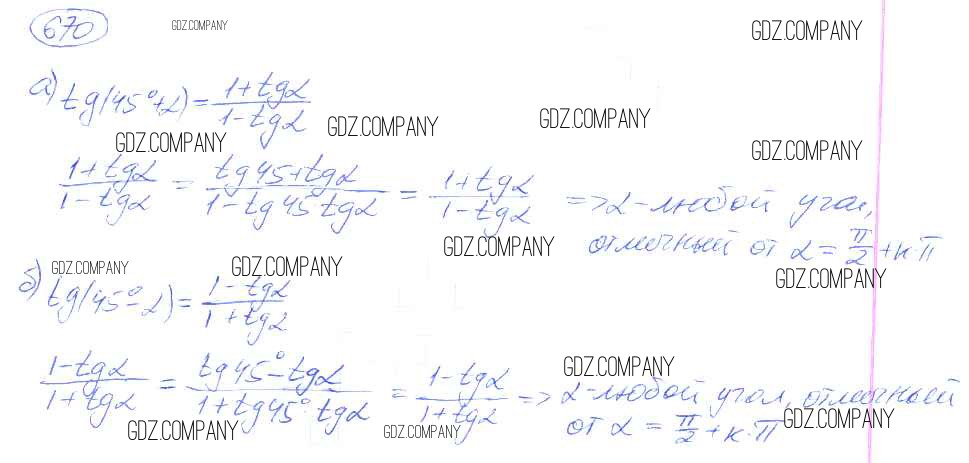 670
GDZ.COMPANY
GDZ.COMPANY
а) tg(45°+α) = (1+tgα)/(1-tgα)
GDZ.COMPANY GDZ.COMPANY GDZ.COMPANY
GDZ.COMPANY
(1+tgα)/(1-tgα) = (tg45+tgα)/(1-tg45°tgα) = (1+tgα)/(1-tgα) => α-любой угол,
отличный от α = π/2 + к·π
GDZ.COMPANY
GDZ.COMPANY GDZ.COMPANY GDZ.COMPANY
б) tg(45°-α) = (1-tgα)/(1+tgα)
GDZ.COMPANY
(1-tgα)/(1+tgα) = (tg45°-tgα)/(1+tg45°tgα) = (1-tgα)/(1+tgα) => α-любой угол, отличный
от α = π/2 + к·π
GDZ.COMPANY GDZ.COMPANY GDZ.COMPANY